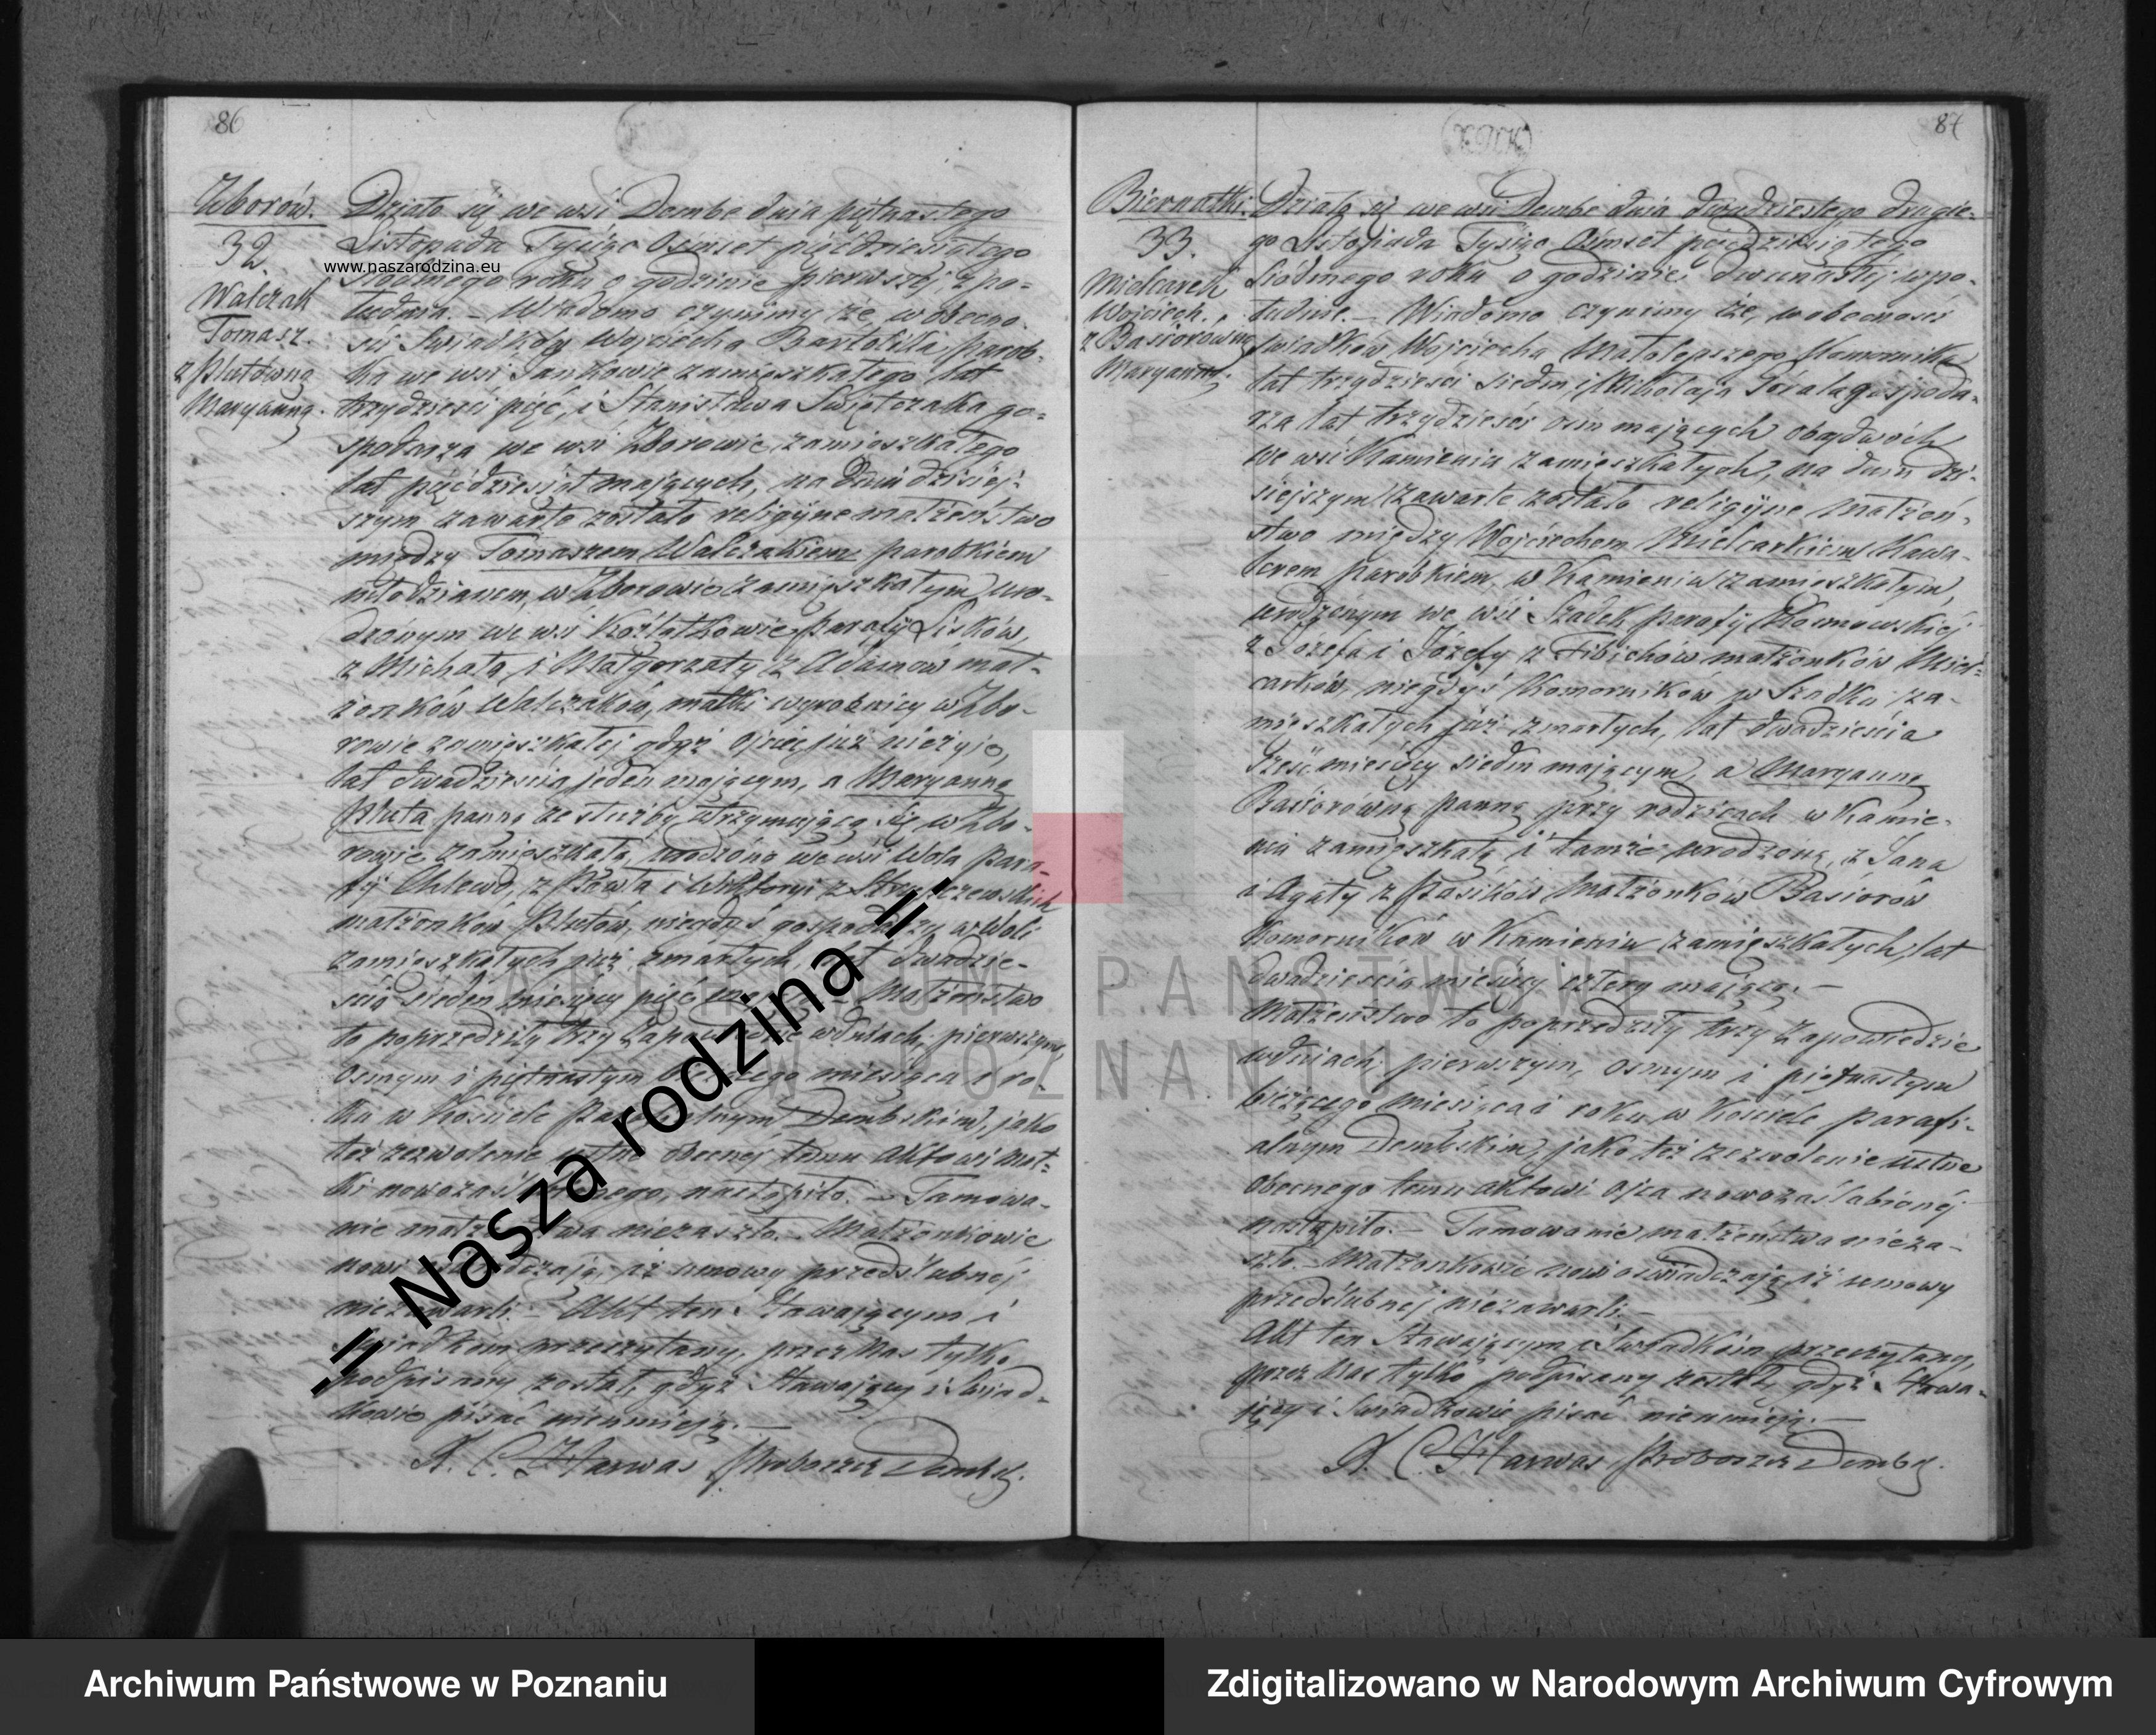 86
Zborów.
32.
Walczak
Tomasz.
z Plutówną
Maryanną.
Działo się we wsi Dembe dnia piętnastego
Listopada Tysiąc Ośmset pięćdziesiątego
www.naszarodzina.eu
siódmego roku o godzinie pierwszej z po-
łudnia. – Wiadomo czynimy że, w obecno-
ści Świadków Wojciecha Bartolika, parob-
ka we wsi Jankowie zamięszkałego lat
trzydzieści pięć, i Stanisława Świętczaka go-
spodarza we wsi Zborowie zamieszkałego
lat pięćdziesiąt mających, na dniu dzisiej-
szym zawarte zostało religijne małżeństwo
między Tomaszem Walczakiem parobkiem
młodzianem, w Zborowie zamięszkałym, uro-
dzonym we wsi Koźlątkowie parafij Lisków,
z Michała i Małgorzaty z Adamów mał-
żonków Walczaków, matki wyrobnicy w Zbo-
rowie zamięszkałej, gdyż ojciec już nieżyje,
lat dwadzieścia jeden mającym, a Maryanną
Pluta panną ze służby utrzymującą się w Zbo-
rowie zamięszkałą, urodzoną we wsi Wola para-
fij Chlewo, z Pawła i Wiktoryi z
małżonków Plutów, niegdyś gospodarzy w Woli
zamięszkałych już zmarłych, lat dwadzie-
ścia siedm miesięcy pięć Małżeństwo
to poprzedziły trzy zapowiedzie w dniach, pierwszym,
ósmym i piętnastym bieżącego miesiąca i ro-
ku w Kościele Parafialnym Dembskim, jako
też zezwolenie ustne obecnej temu Aktowi mat-
ki nowozaślubionego, nastąpiło. – Tamowa-
nie małżeństwa niezaszło. – Małżonkowie
nowi oświadczają, iż umowy przedślubnej
niezawarli. – Akt ten Stawającym i
Świadkom przeczytany, przez Nas tylko
podpisany został, gdyż Stawający i Świad-
kowie pisać nieumieją. –
X. C. Harwas Proboszcz Dembs.
= Nasza rodzina =
87
Biernatki.
33.
Mielcarek
Wojciech.
z Basiorówną
Maryanną.
Działo się we wsi Dembe dnia dwudziestego drugie-
go Listopada Tysiąc Ośmset pięćdziesiątego
siódmego roku o godzinie dwunastej w po-
łudnie. – Wiadomo czynimy że, w obecności
świadków Wojciecha Małolepszego Komornika
lat trzydzieści siedm i Mikołaja gospoda-
rza lat trzydzieści ośm mających obydwóch
we wsi Kamieniu zamięszkałych, na dniu dzi-
siejszym zawarte zostało religijne małżeń-
stwo między Wojciechem Mielcarkiem Kawa-
lerem parobkiem, w Kamieniu zamięszkałym,
urodzonym we wsi Szadek parafij Kosmowskiej
z Józefa i Józefy z Fibichów małżonków Miel-
carków, niegdyś Komorników w Szadku za-
mięszkałych już zmarłych, lat dwadzieścia
sześć miesięcy siedm mającym, a Maryanną
Basiorówną panną przy rodzicach w Kamie-
niu zamięszkałą i tamże urodzoną, z Jana
i Agaty z Pasików Małżonków Basiorów
Komorników w Kamieniu zamięszkałych, lat
dwadzieścia miesięcy cztery mającą. –
Małżeństwo to poprzedziły trzy zapowiedzie
w dniach, pierwszym, ósmym i piętnastym
bieżącego miesiąca i roku w Kościele parafi-
alnym Dembskim, jako też zezwolenie ustne
obecnego temu aktowi ojca nowozaślubionej
nastąpiło. – Tamowanie małżeństwa nieza-
szło. – Małżonkowie nowi oświadczają iż umowy
przedślubnej niezawarli. –
Akt ten Stawającym i Świadkom przeczytany,
przez Nas tylko podpisany został, gdyż Stawa-
jący i Świadkowie pisać nieumieją. –
X. C. Harwas Proboszcz Dembs.
ARCHIWUM PAŃSTWOWE
W POZNANIU
Archiwum Państwowe w Poznaniu
Zdigitalizowano w Narodowym Archiwum Cyfrowym